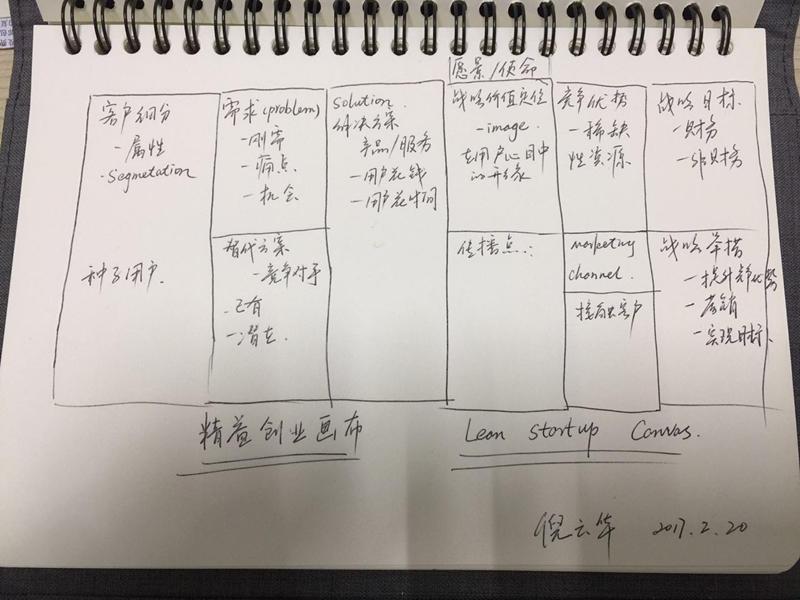 客户细分
-属性
-Segmetation
种子用户.
需求(problem)
-刚需
-痛点
-机会
替代方案
-竞争对手
.已有
-潜在.
Solution.
解决方案
产品/服务
-用户花钱
-用户花时间
愿景/使命
战略价值定位
-image.
在用户心目中
的形象
传播点:
竞争优势
-稀缺
性资源
marketing
channel.
接触客户
战略目标.
-财务
-非财务
战略举措
-提升竞争优势
-营销
-实现目标.
精益创业画布
Lean Startup Canvas.
倪云华 2017.2.20